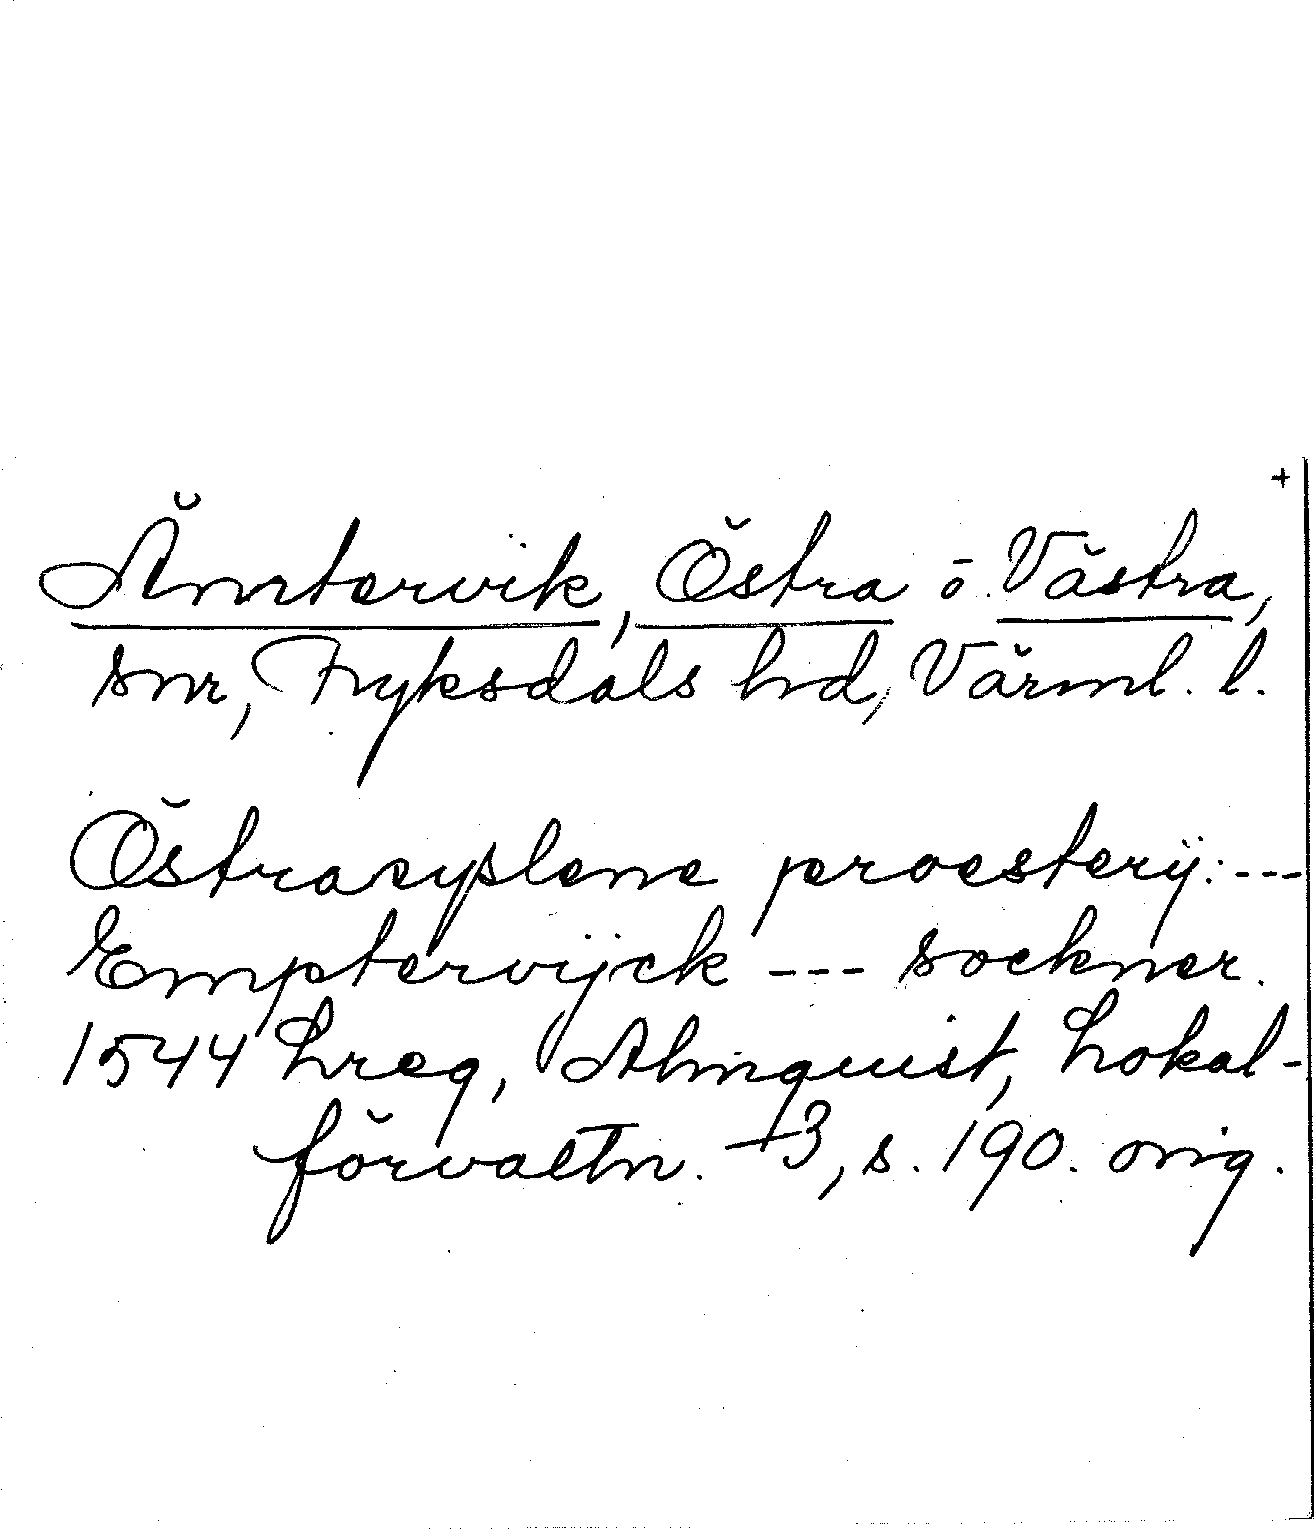 +
Ämtervik, Östra o Västra,
snr, Fryksdals hd, Värml. l.
Östrasyslene proesterÿ: ---
Emptervijck --- sockner.
1544 Lreg, Almquist, Lokal-
förvaltn. +3, s. 190. orig.